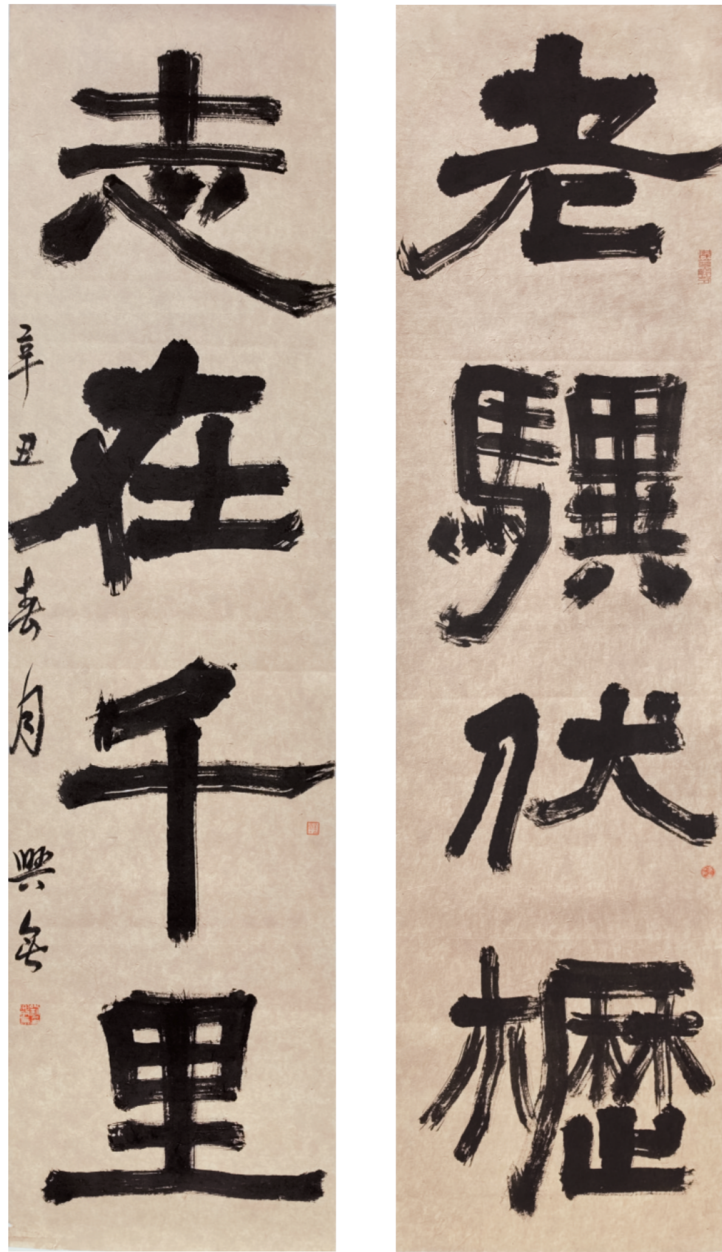 老驥伏櫪
志在千里
辛丑春月 興